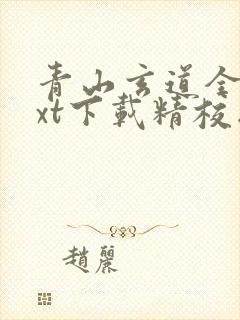 青山玄道全
xt下載精校
趙麗